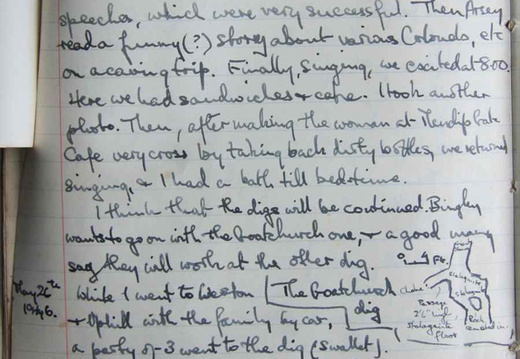 speeches, which were very successful. Then Arsey
read a funny(?) story about various Colonels, etc
on a caving trip. Finally, singing, we exited at 8.00.
Here we had sandwiches + cake. I took another
photo. Then, after making the woman at Mendip Gate
Cafe very cross by taking back dirty bottles, we returned
singing, & I had a bath till bedtime.
I think that the digs will be continued. Bingley
wants to go on with the Goatchurch one, + a good many
say they will work at the other dig.
May 26th
1946.
While I went to Weston
+ Uphill with the family by car,
a party of 3 went to the dig (swallet).
The Goatchurch
dig
Ft.
Passage
stalagmite
floor